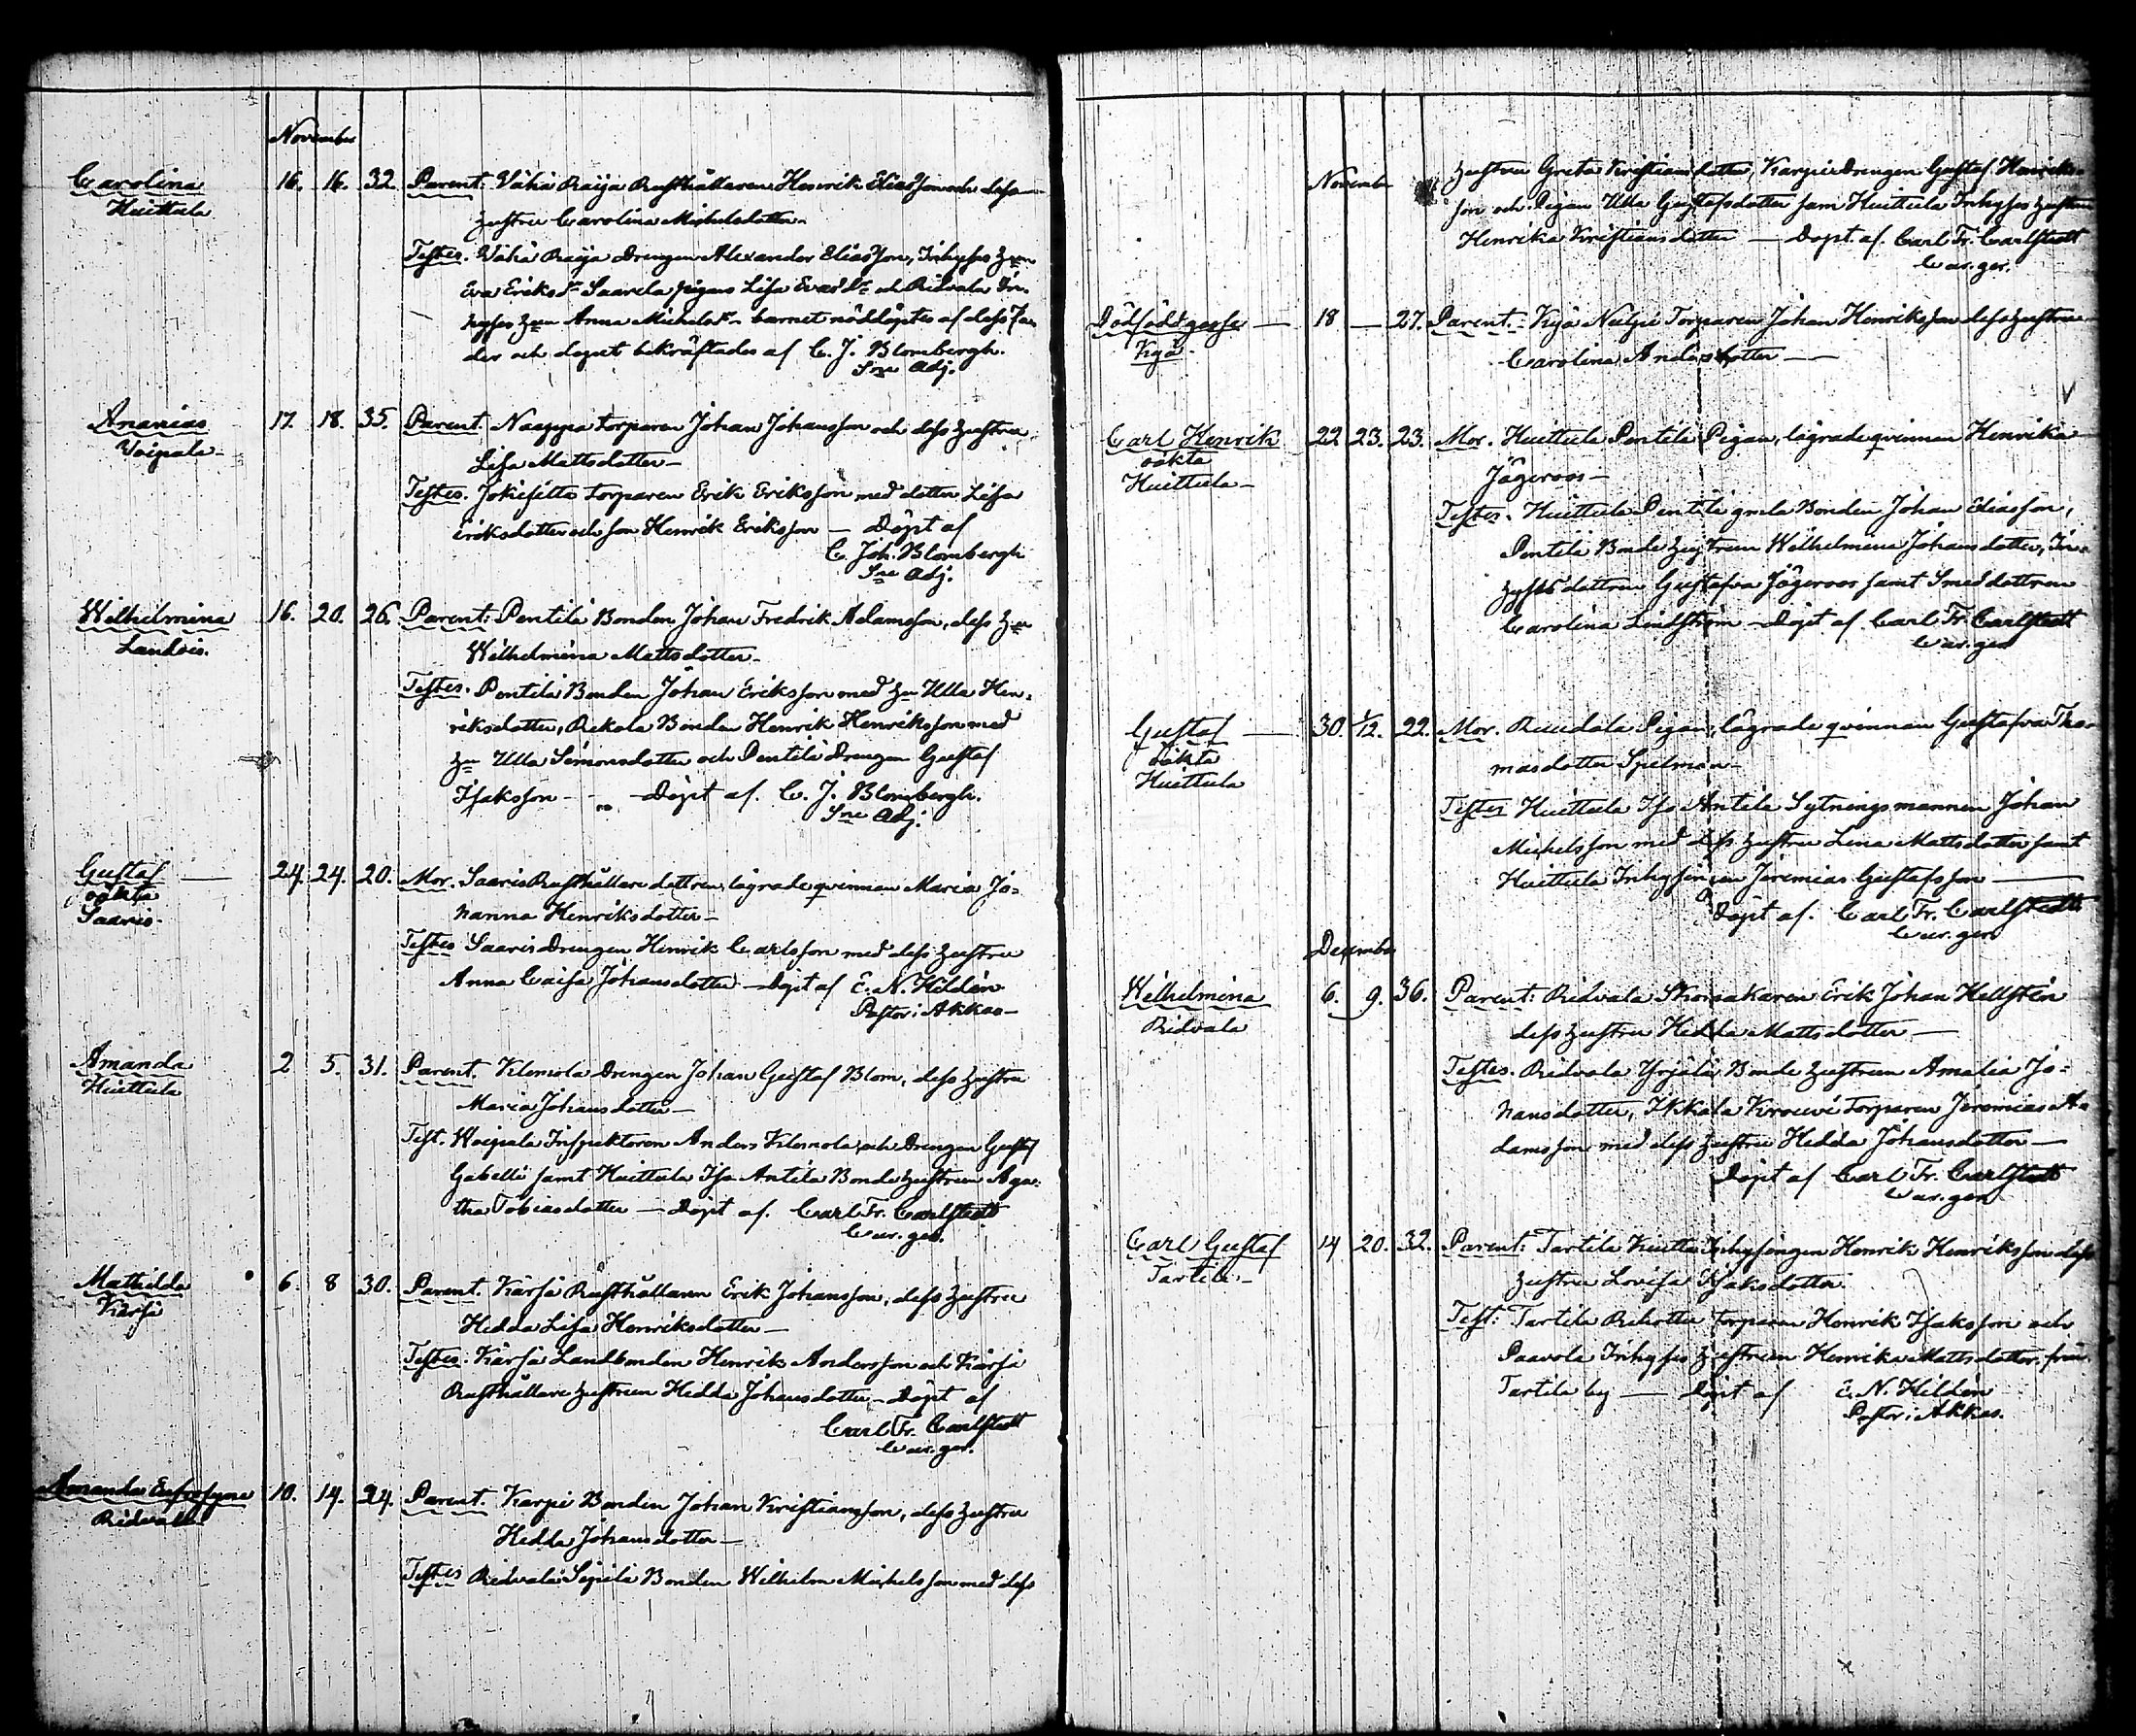 November
Carolina 16. 16. 32. Parent. Vähä Raija Rusthållaren Henrik Eliasson och dess
Huittula hustru Carolina Michelsdotter
Testes. Vähä Raija Drengen Alexander Eliasson, Inhyses hun
Eva Eriksdr Saarela pigan Lisa Evasdr och Ridvala In-
hyses hun Anna Michelsdr barnet nöddöptes af dess fa-
der och dopet bekräftades af C. J. Blombergh.
Sne Adj.
Ananias 17. 18. 35. Parent. Nayppa torparen Johan Johansson och dess hustru
Voipala Lisa Mattsdotter
Testes. Jokisilta torparen Erik Eriksson med dotter Lisa
Eriksdotter och son Henrik Eriksson — Döpt af
C. Joh. Blombergh
Sne Adj.
Wilhelmina 16. 20. 26. Parent: Pentilä Bonden Johan Fredrik Adamsson, dess hu
Laukois. Wilhelmina Mattsdotter
Testes. Pentilä Bonden Johan Eriksson med hu Ulla Hen-
riksdotter, Rekola Bonden Henrik Henriksson med
hu Ulla Simonsdotter och Pentilä Drengen Gustaf
Isaksson - - Döpt af. C. J. Blombergh.
Sne Adj.
Gustaf — 24. 24. 20. Mor. Saaris Rusthållare dottren, lägrade qvinnan Maria Jo-
oäkta hanna Henriksdotter
Saaris. Testes Saaris Drengen Henrik Carlsson med dess hustru
Anna Caisa Johansdotter — Döpt af E. N. Hildén
Pastor i Akkas
Amanda 2 5. 31. Parent. Klemola Drengen Johan Gustaf Blom, dess hustru
Huittula Maria Johansdotter
Test. Woipala Inspektoren Anders Klemola och Drengen Gustaf
Gabelli samt Huittula Iso Antila Bonde hustrun Aga-
tha Tobiasdotter — Döpt af. Carl Fr. Carlstedt
Cur. ger.
Mathilda 6. 8 30. Parent. Kärjä Rusthållaren Erik Johansson, dess hustru
Kärjä Hedda Lisa Henriksdotter
Testes. Kärjä Landbonden Henrik Andersson och Kärjä
Rusthållare hustrun Hedda Johansdotter — Döpt af
Carl Fr. Carlstedt
Cur. ger.
Amanda Eufrosyne 10. 14. 24. Parent. Karpi Bonden Johan Kristiansson, dess hustru
Ridvala Hedda Johansdotter
Testes Ridvala Sipilä Bonden Wilhelm Michelsson med dess
November hustru Greta Kristiansdotter, Karpi Drengen Gustaf Henriks-
son och Pigan Ulla Gustafsdotter sam Huittula Inhyses hustrun
Henrika Kristiansdotter — Döpt. af. Carl Fr. Carlstedt
Cur. ger.
Dödfödd gosse — 18 — 27. Parent. Kyjö Torparen Johan Henriksson dess hustru
Kyjö. Carolina Andersdotter
Carl Henrik 22 23. 23. Mor. Huittula Pentilä Pigan, lägrade qvinnan Henrika
oäkta Jägeroos
Huittula Testes. Huittula Pentilä gmla Bonden Johan Eliasson,
Pentilä Bonde hustrun Wilhelmina Johansdotter, In-
hyses dottren Gustafva Jägeroos samt Smed dottren
Carolina Lindström — Döpt af. Carl Fr. Carlstedt
Cur. ger
Gustaf — 30. 1/12. 22. Mor. Ruudala Pigan, lägrade qvinnan Gustafva Tho-
oäkta masdotter Spelman
Huittula Testes Huittula Iso Antila Sytningsmannen Johan
Michelsson med dess hustru Lena Mattsdotter samt
Huittula Inhysingen Jeremias Gustafsson
Döpt af. Carl Fr. Carlstedt
Cur. ger
December
Wilhelmina 6. 9. 36. Parent: Ridvala Skomakaren Erik Johan Hellstén
Ridvala dess hustru Hedda Mattsdotter
Testes. Ridvala Yrjölä Bonde hustrun Amalia Jo-
hansdotter, Ikkala Krouvi Torparen Jeremias A-
damsson med dess hustru Hedda Johansdotter
Döpt af Carl Fr. Carlstedt
Cur. ger
Carl Gustaf 14 20. 32. Parent: Tartila Inhysingen Henrik Henriksson dess
Tartila hustru Lovisa Isaksdotter
Test: Tartila torparen Henrik Isaksson och
Paavola Inhyses hustrun Henrika Mattsdotter från
Tartila by — döpt af E. N. Hildén
Pastor i Akkas.